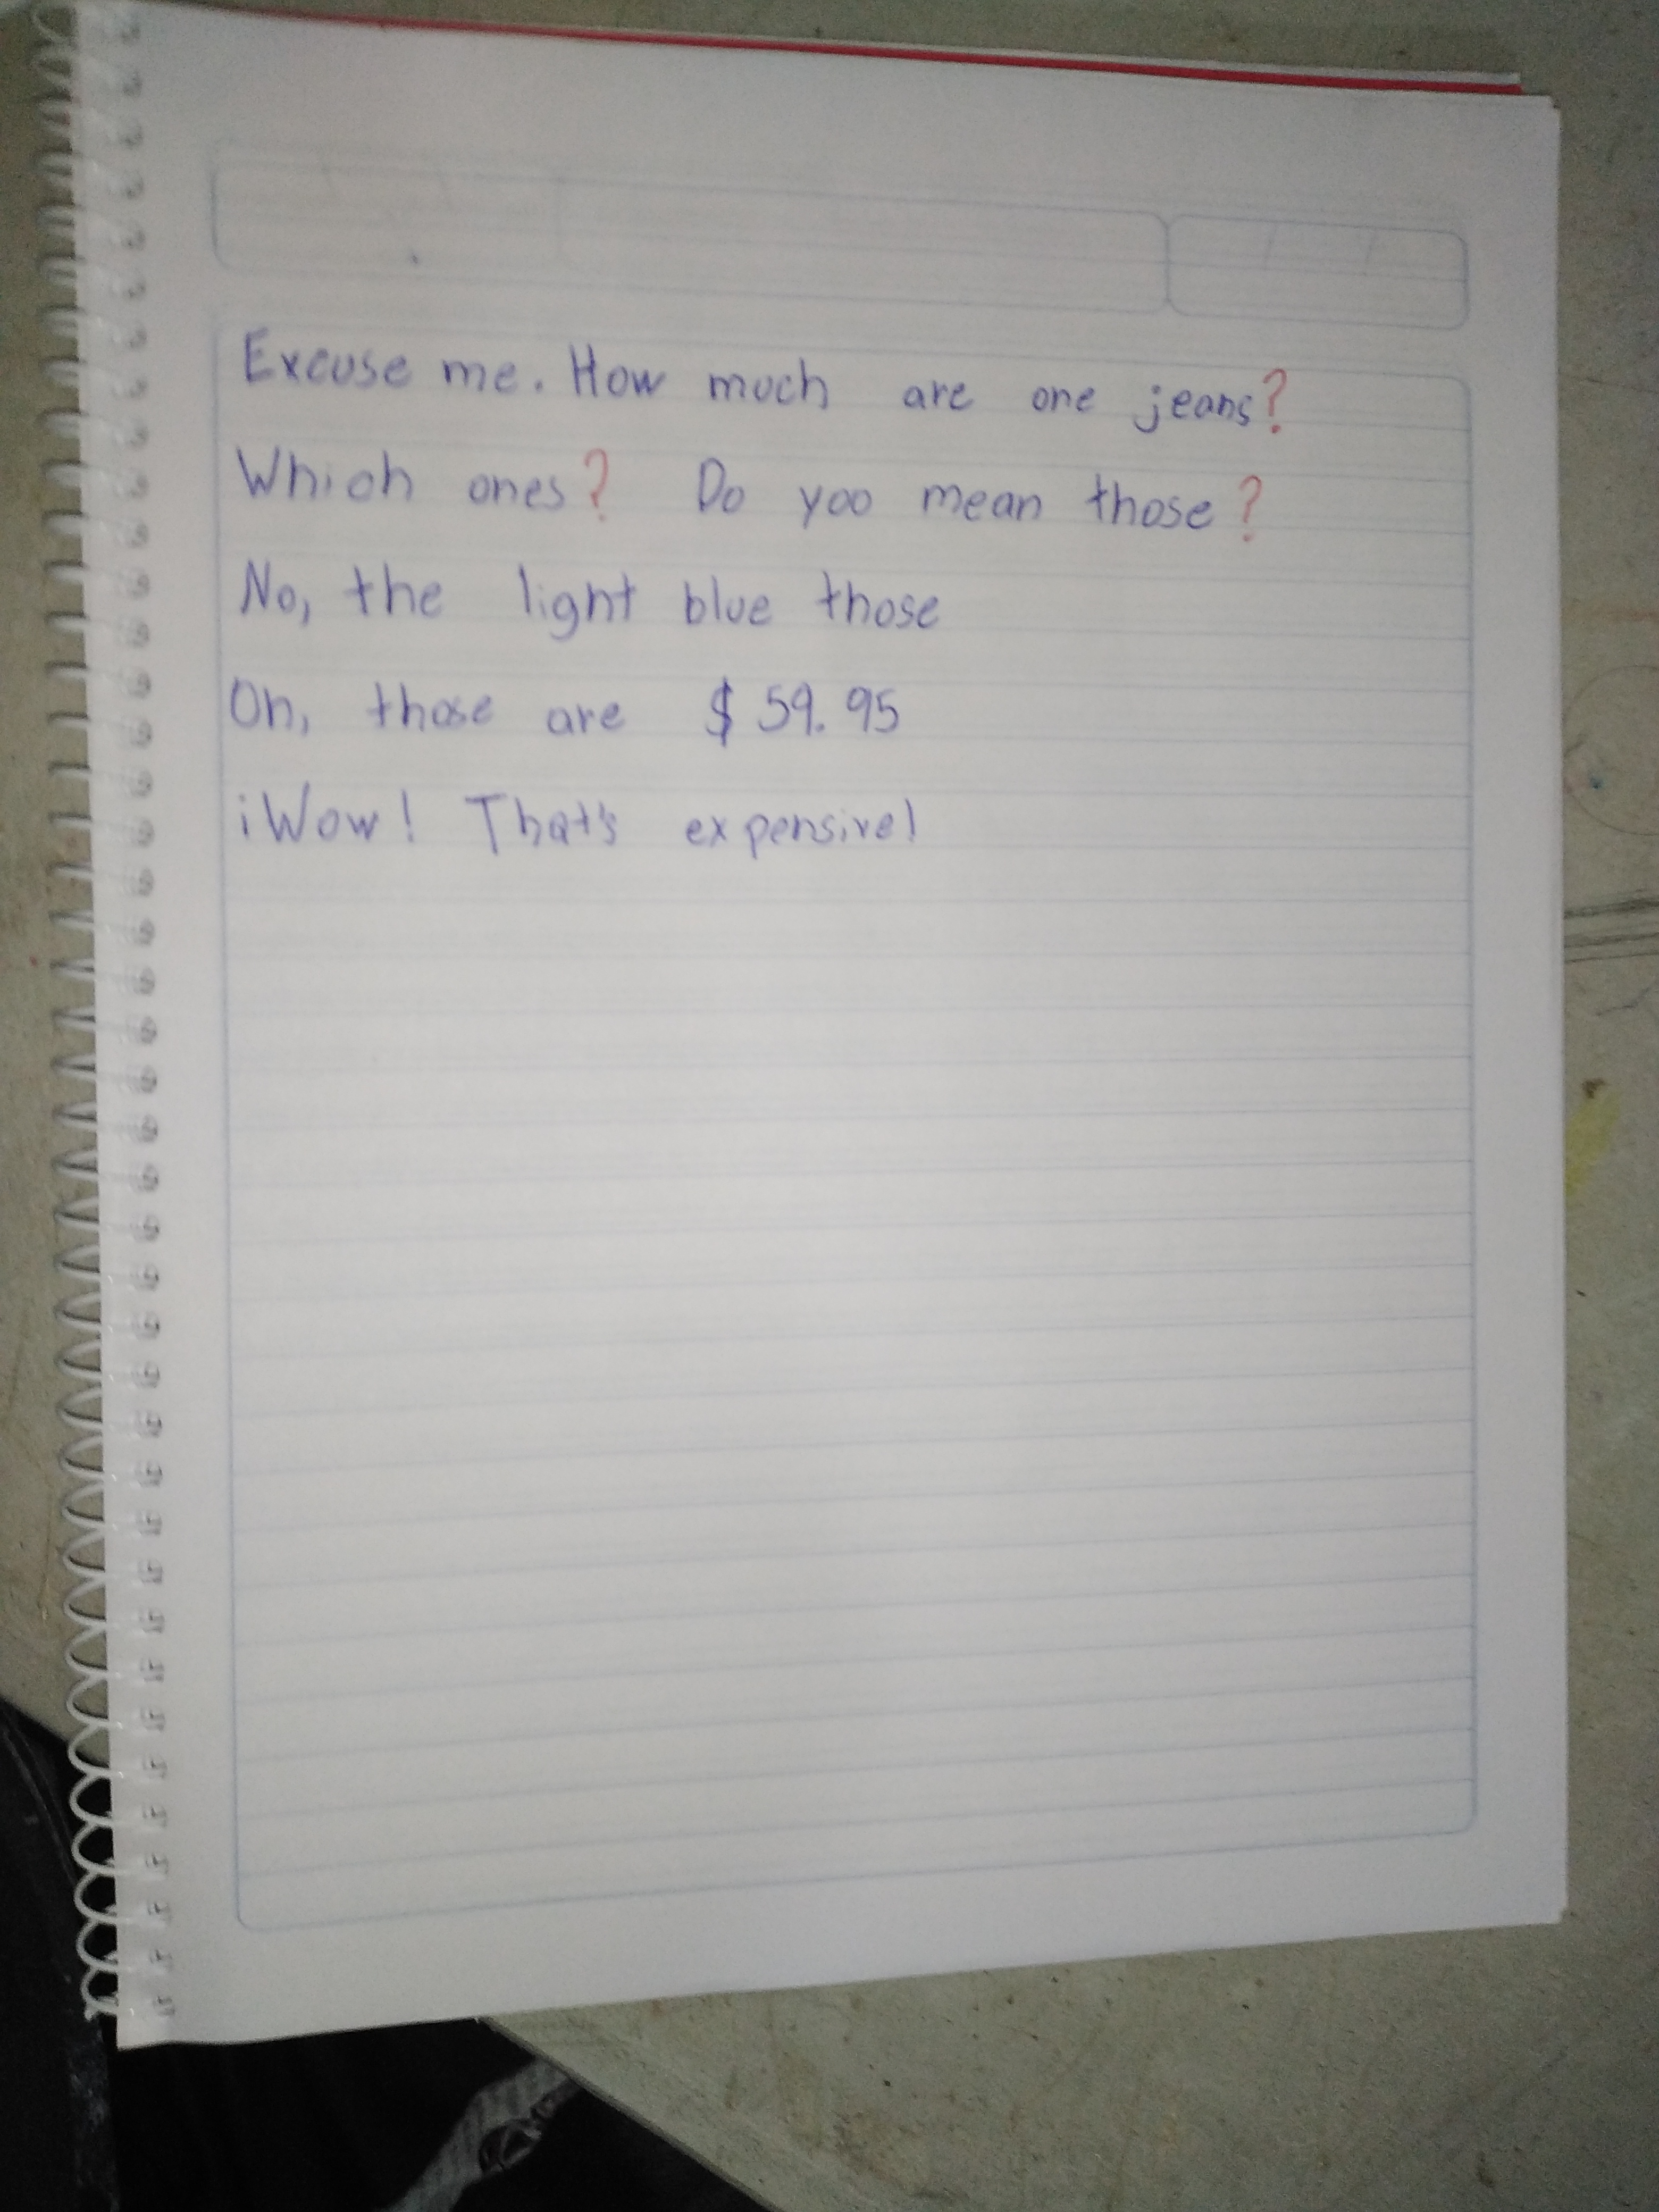 Excuse me. How much are one jeans?
Which ones? Do you mean those?
No, the light blue those
Oh, those are $ 59.95
¡Wow! That's expensive!